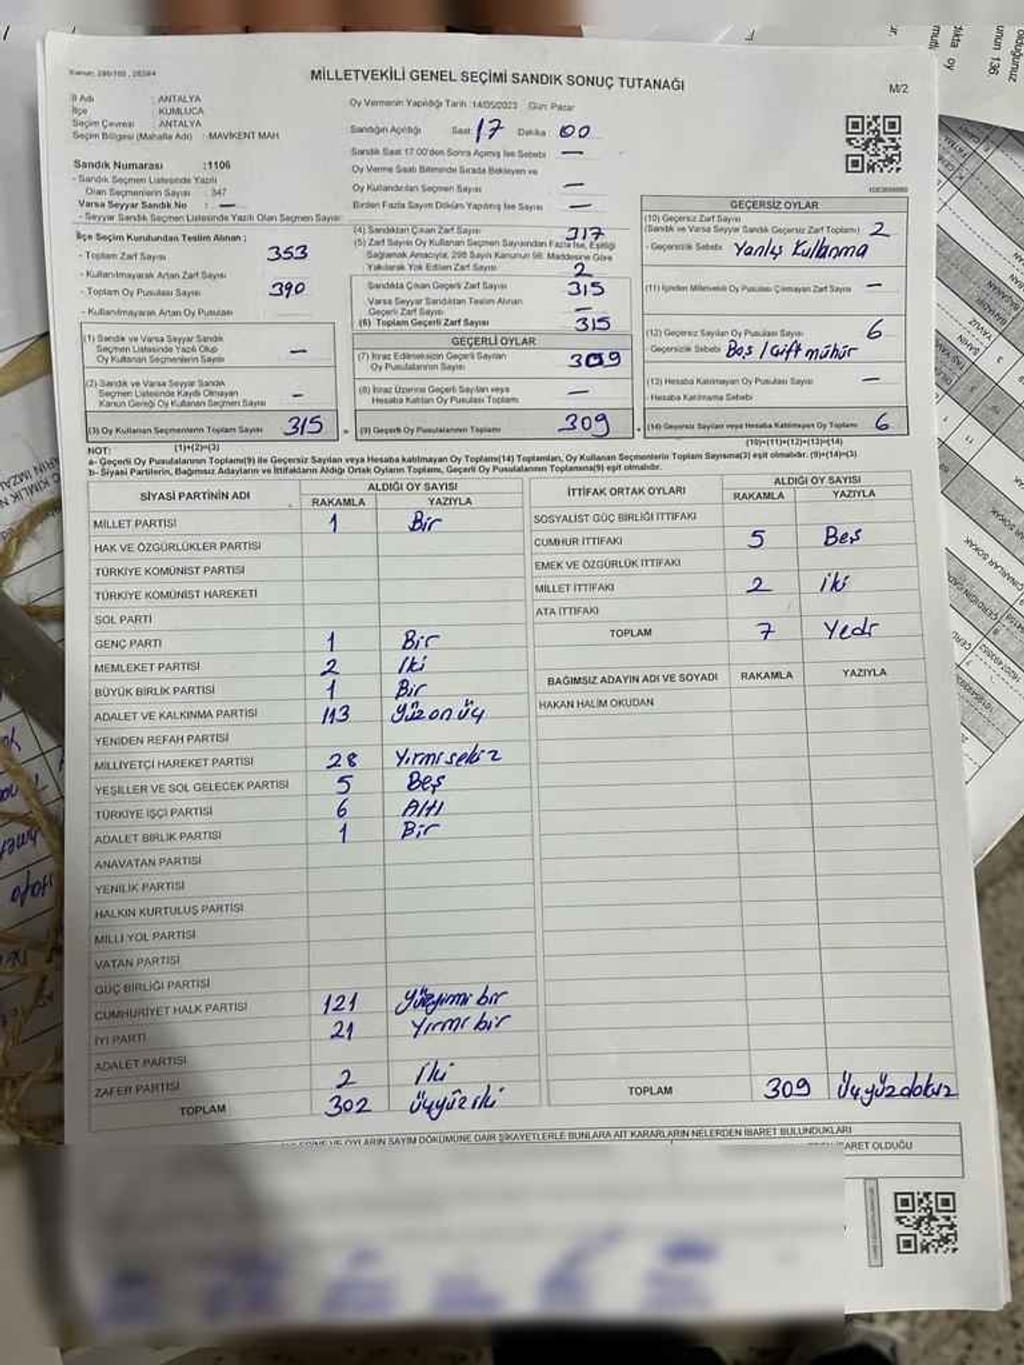 MİLLETVEKİLİ GENEL SEÇİMİ SANDIK SONUÇ TUTANAĞI
M/2
İl Adı : ANTALYA
İlçe : KUMLUCA
Seçim Çevresi : ANTALYA
Seçim Bölgesi (Mahalle Adı) : MAVİKENT MAH
Oy Vermenin Yapıldığı Tarih :14/05/2023 Gün: Pazar
Sandığın Açıldığı Saat: 17 Dakika 00
Sandık Saat 17.00'den Sonra Açılmış İse Sebebi —
Oy Verme Saati Bitiminde Sırada Bekleyen ve
Oy Kullandırılan Seçmen Sayısı —
Birden Fazla Sayım Döküm Yapılmış İse Sayısı —
Sandık Numarası :1106
- Sandık Seçmen Listesinde Yazılı
Olan Seçmenlerin Sayısı : 347
Varsa Seyyar Sandık No : —
- Seyyar Sandık Seçmen Listesinde Yazılı Olan Seçmen Sayısı
İlçe Seçim Kurulundan Teslim Alınan ;
- Toplam Zarf Sayısı 353
- Kullanılmayarak Artan Zarf Sayısı
- Toplam Oy Pusulası Sayısı 390
- Kullanılmayarak Artan Oy Pusulası
(1) Sandık ve Varsa Seyyar Sandık
Seçmen Listesinde Yazılı Olup
Oy Kullanan Seçmenlerin Sayısı —
(2) Sandık ve Varsa Seyyar Sandık
Seçmen Listesinde Kaydı Olmayan
Kanun Gereği Oy Kullanan Seçmen Sayısı —
(3) Oy Kullanan Seçmenlerin Toplam Sayısı 315
(4) Sandıktan Çıkan Zarf Sayısı 317
(5) Zarf Sayısı Oy Kullanan Seçmen Sayısından Fazla İse, Eşitliği
Sağlamak Amacıyla, 298 Sayılı Kanunun 98. Maddesine Göre
Yakılarak Yok Edilen Zarf Sayısı 2
Sandıkta Çıkan Geçerli Zarf Sayısı 315
Varsa Seyyar Sandıktan Teslim Alınan
Geçerli Zarf Sayısı —
(6) Toplam Geçerli Zarf Sayısı 315
GEÇERLİ OYLAR
(7) İtiraz Edilmeksizin Geçerli Sayılan
Oy Pusulalarının Sayısı 309
(8) İtiraz Üzerine Geçerli Sayılan veya
Hesaba Katılan Oy Pusulası Toplamı —
(9) Geçerli Oy Pusulalarının Toplamı 309
GEÇERSİZ OYLAR
(10) Geçersiz Zarf Sayısı
(Sandık ve Varsa Seyyar Sandık Geçersiz Zarf Toplamı) 2
- Geçersizlik Sebebi Yanlış Kullanma
(11) İçinden Milletvekili Oy Pusulası Çıkmayan Zarf Sayısı —
(12) Geçersiz Sayılan Oy Pusulası Sayısı 6
- Geçersizlik Sebebi Boş / Çift mühür
(13) Hesaba Katılmayan Oy Pusulası Sayısı —
- Hesaba Katılmama Sebebi
(14) Geçersiz Sayılan veya Hesaba Katılmayan Oy Toplamı 6
NOT: (1)+(2)=(3) (10)+(11)+(12)+(13)=(14)
a- Geçerli Oy Pusulalarının Toplamı(9) ile Geçersiz Sayılan veya Hesaba katılmayan Oy Pusulası Toplamı(14) Toplamları, Oy Kullanan Seçmenlerin Toplam Sayısına(3) eşit olmalıdır. (9)+(14)=(3)
b- Siyasi Partilerin, Bağımsız Adayların ve İttifakların Aldığı Ortak Oyların Toplamı, Geçerli Oy Pusulalarının Toplamına(9) eşit olmalıdır.
SİYASİ PARTİNİN ADI ALDIĞI OY SAYISI
RAKAMLA YAZIYLA
MİLLET PARTİSİ 1 Bir
HAK VE ÖZGÜRLÜKLER PARTİSİ
TÜRKİYE KOMÜNİST PARTİSİ
TÜRKİYE KOMÜNİST HAREKETİ
SOL PARTİ
GENÇ PARTİ 1 Bir
MEMLEKET PARTİSİ 2 İki
BÜYÜK BİRLİK PARTİSİ 1 Bir
ADALET VE KALKINMA PARTİSİ 113 Yüzonüç
YENİDEN REFAH PARTİSİ
MİLLİYETÇİ HAREKET PARTİSİ 28 Yirmisekiz
YEŞİLLER VE SOL GELECEK PARTİSİ 5 Beş
TÜRKİYE İŞÇİ PARTİSİ 6 Altı
ADALET BİRLİK PARTİSİ 1 Bir
ANAVATAN PARTİSİ
YENİLİK PARTİSİ
HALKIN KURTULUŞ PARTİSİ
MİLLİ YOL PARTİSİ
VATAN PARTİSİ
GÜÇ BİRLİĞİ PARTİSİ
CUMHURİYET HALK PARTİSİ 121 Yüzyirmi bir
İYİ PARTİ 21 Yirmi bir
ADALET PARTİSİ
ZAFER PARTİSİ 2 İki
TOPLAM 302 Üçyüziki
İTTİFAK ORTAK OYLARI ALDIĞI OY SAYISI
RAKAMLA YAZIYLA
SOSYALİST GÜÇ BİRLİĞİ İTTİFAKI
CUMHUR İTTİFAKI 5 Beş
EMEK VE ÖZGÜRLÜK İTTİFAKI
MİLLET İTTİFAKI 2 İki
ATA İTTİFAKI
TOPLAM 7 Yedi
BAĞIMSIZ ADAYIN ADI VE SOYADI RAKAMLA YAZIYLA
HAKAN HALİM OKUDAN
TOPLAM 309 Üçyüzdokuz
OYLARIN SAYIM DÖKÜMÜNE DAİR ŞİKAYETLERLE BUNLARA AİT KARARLARIN NELERDEN İBARET BULUNDUKLARI